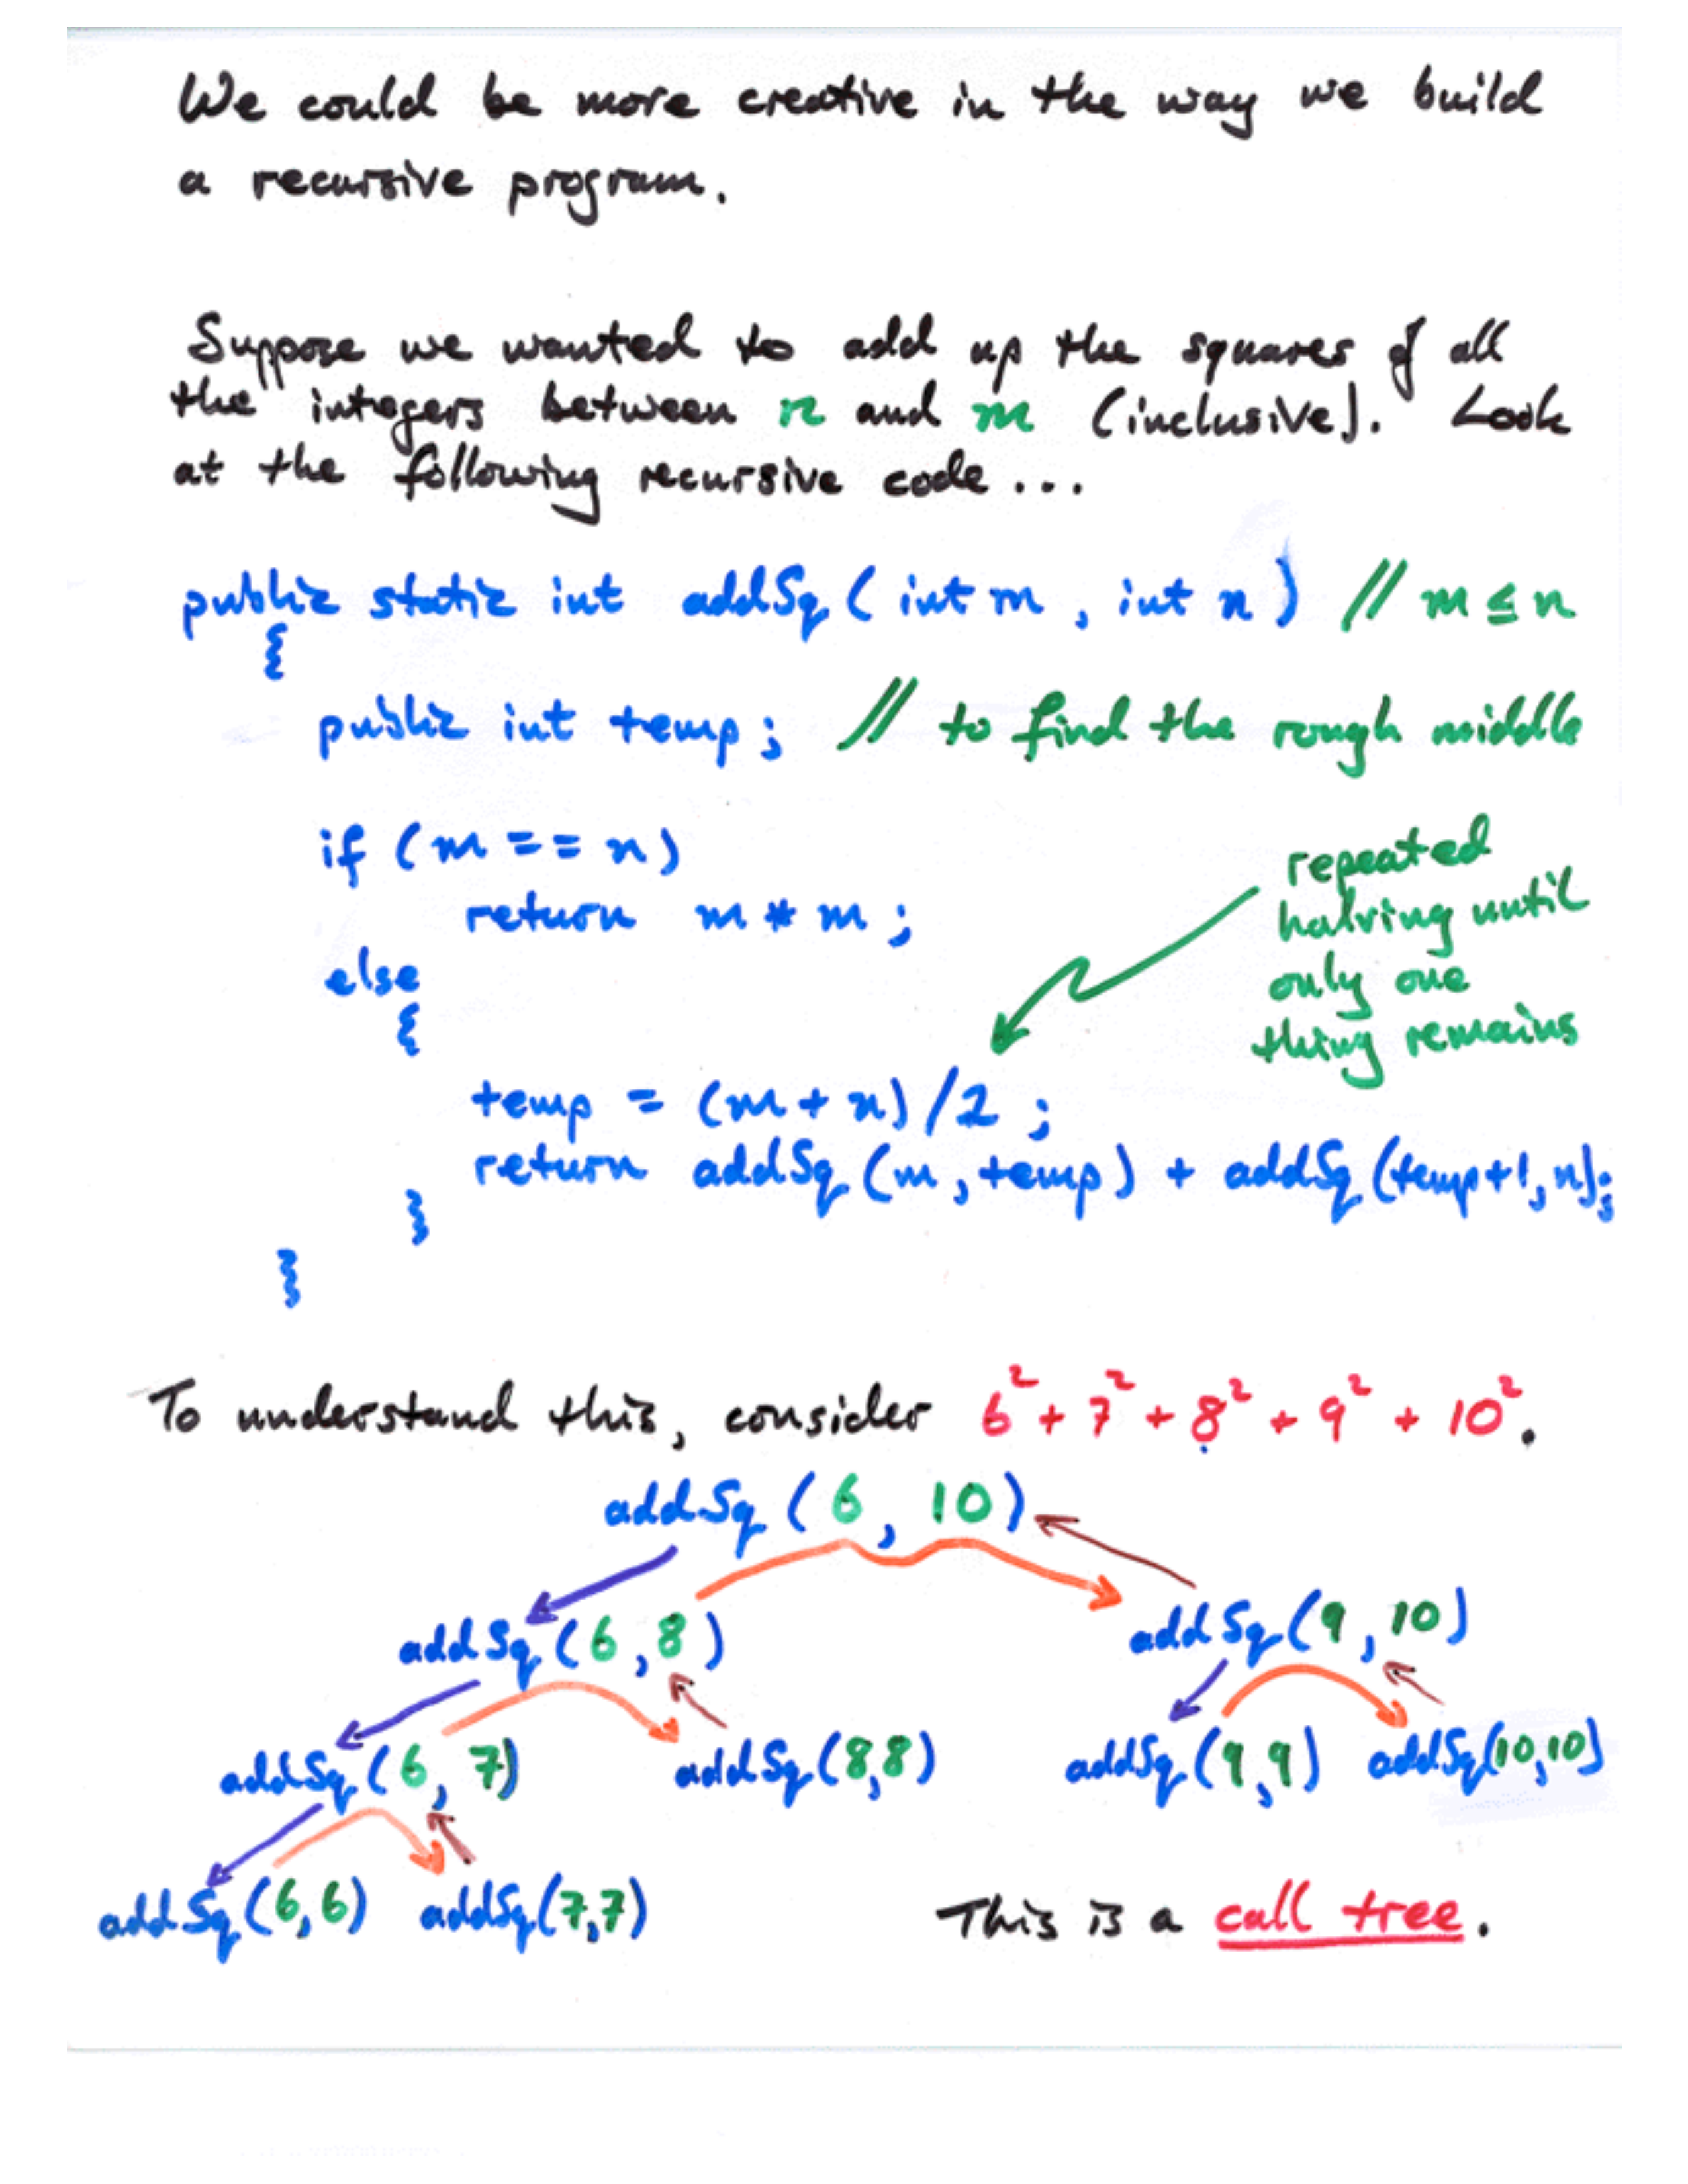 We could be more creative in the way we build
a recursive program.
Suppose we wanted to add up the squares of all
the integers between n and m (inclusive). Look
at the following recursive code ...
public static int addSq ( int m , int n ) // m ≤ n
{
public int temp ; // to find the rough middle
if ( m == n )
return m * m ;
else
{
repeated
halving until
only one
thing remains
temp = (m + n) / 2 ;
return addSq (m , temp) + addSq (temp+1, n);
}
}
To understand this, consider 6² + 7² + 8² + 9² + 10².
addSq ( 6 , 10 )
addSq ( 6 , 8 ) addSq ( 9 , 10 )
addSq ( 6 , 7 ) addSq (8,8) addSq (9,9) addSq(10,10)
addSq (6,6) addSq(7,7) This is a call tree.